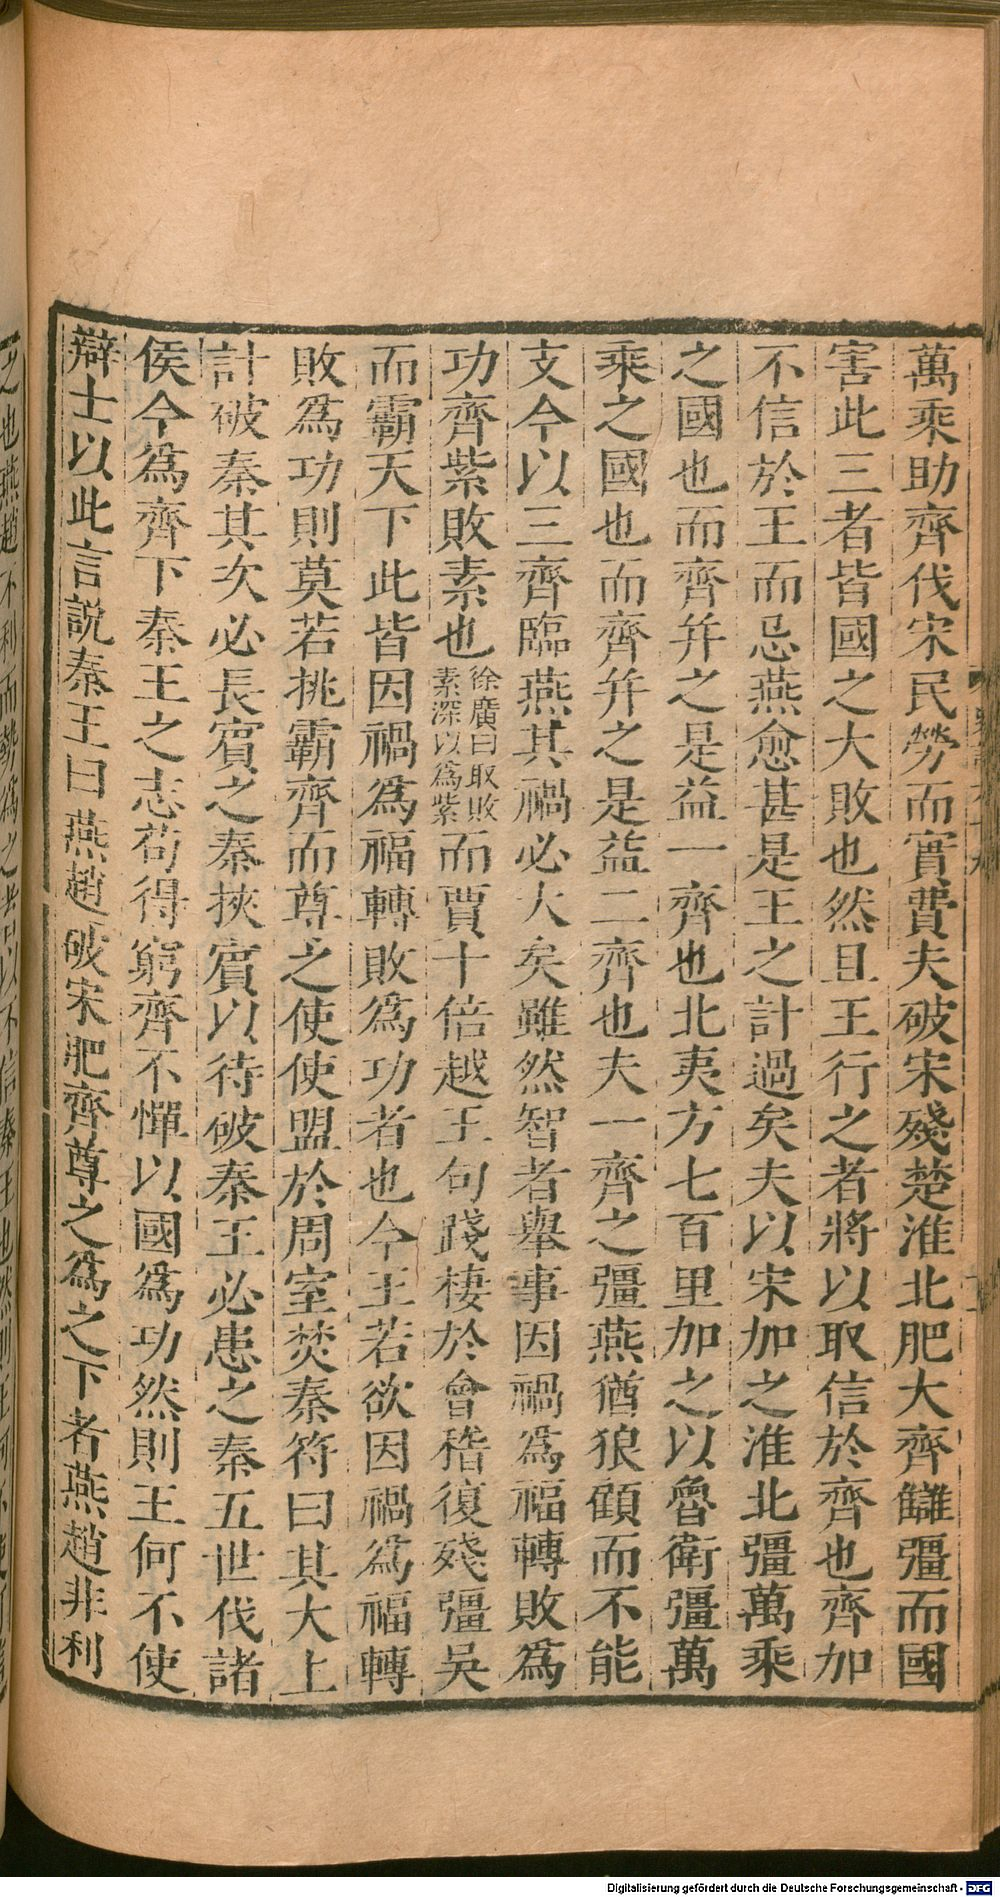 萬乘助齊伐宋民勞而實費夫破宋殘楚淮北肥大齊讎彊而國
害此三者皆國之大敗也然且王行之者將以取信於齊也齊加
不信於王而忌燕愈甚是王之計過矣夫以宋加之淮北彊萬乘
之國也而齊并之是益一齊也北夷方七百里加之以魯衛彊萬
乘之國也而齊并之是益二齊也夫一齊之彊燕猶狼顧而不能
支今以三齊臨燕其禍必大矣雖然智者舉事因禍為福轉敗為
功齊紫敗素也徐廣曰取敗素深以為紫而賈十倍越王句踐棲於會稽復殘彊吳
而霸天下此皆因禍為福轉敗為功者也今王若欲因禍為福轉
敗為功則莫若挑霸齊而尊之使使盟於周室焚秦符曰其大上
計破秦其次必長賓之秦挾賓以待破秦王必患之秦五世伐諸
侯今為齊下秦王之志苟得窮齊不憚以國為功然則王何不使
辯士以此言說秦王曰燕趙破宋肥齊尊之為之下者燕趙非利
之也燕趙不利而勢為之者以不信秦王也然則王何不使
Digitalisierung gefördert durch die Deutsche Forschungsgemeinschaft - DFG